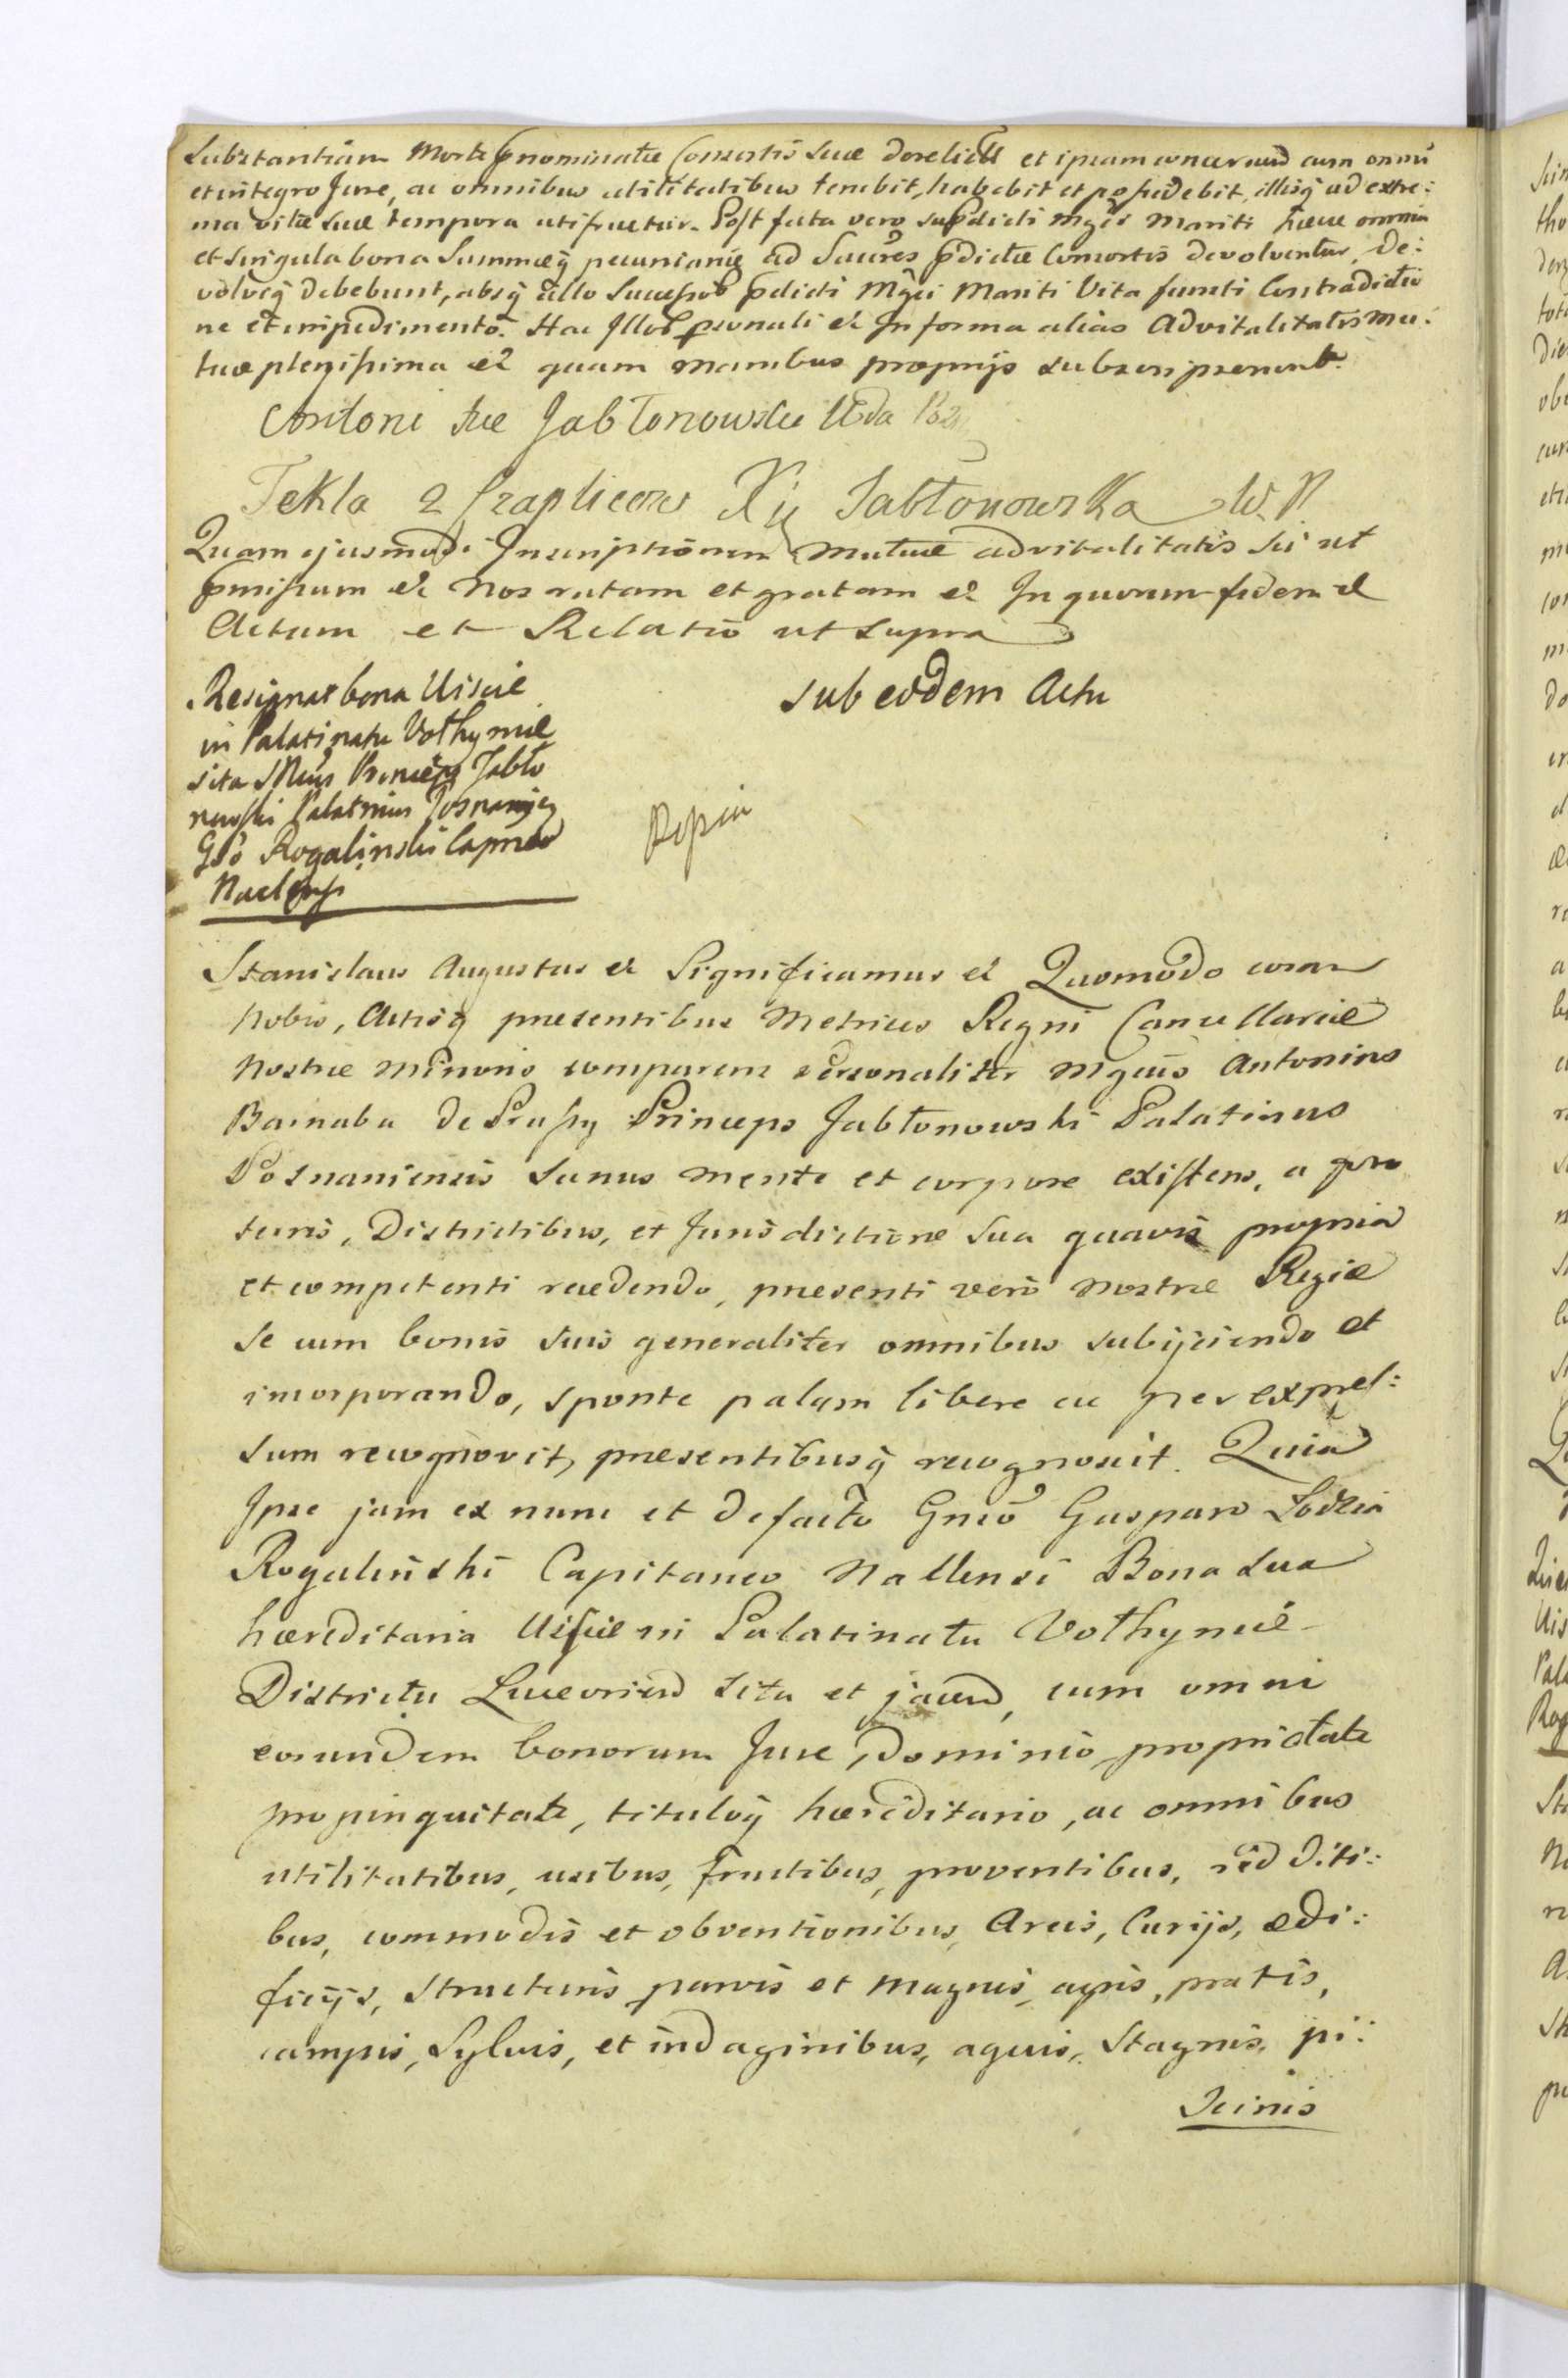 Substantiam Morte pnominatæ Consortis suæ derelictã et ipsam concernend cum omni
et integro Jure, ac omnibus utilitatibus tenebit, habebit et possidebit, illisq ad extre:
ma vitæ suæ tempora utifruetur. Post fata vero supdicti Mgci Mariti hæc omnia
et singula bona Summæq pecuniariæ ad Succres pdictæ Consortis devolventur, de:
volviq debebunt, absq ullo Successor pdicti Mgci Mariti Vita functi Contradictio
ne et impedimento. Hac Illor psonali et In forma alias Advitalitatis mu:
tuæ plenissima et quam manibus proprijs subscripserunt.
Antoni Xże Jabłonowski Wda Poz
Tekla z Czaplicow Xię Jabłonowska W. P.
Quam ejusmodi Inscriptionem Mutuæ advitalitatis sic ut
pmissum et Nos ratam et gratam et In quorum fidem et
Actum et Relatio ut supra
Resignat bona Uiscie
in Palatinatu Volhyniæ
sita Illus Princeps Jabło
nowski Palatinus Posnanien
Gso Rogalinski Capneo
Naclensi
sub eodem Actu
Stanislaus Augustus et Significamus et Quomodo coram
Nobis, Actisq præsentibus Metrices Regni Cancellariæ
Nostræ Minoris comparens personaliter Mgcus Antonius
Barnaba de Prussy Princeps Jabłonowski Palatinus
Posnaniensis sanus mente et corpore existens, a quo
turis, Districtibus, et Jurisdictione sua quavis propria
et competenti recedendo, præsenti vero Nostræ Regiæ
se cum bonis suis generaliter omnibus subijciendo et
incorporando, sponte palam libere ac per expres:
sum recognovit, præsentibusq recognoscit. Quia
Ipse jam ex nunc et de facto Gneo Gasparo Łodzia
Rogalinski Capitaneo Naklensi Bona sua
hæreditaria Uiscie in Palatinatu Volhyniæ
Districtu Luceoriend sita et jacend, cum omni
eorundem bonorum Jure, Dominio, proprietate
propinquitate, tituloq hæreditario, ac omnibus
utilitatibus, usibus, fructibus, proventibus, redditi:
bus, commodis et obventionibus, Areis, Curijs, ædi:
ficijs, structuris parvis et magnis, agris, pratis,
campis, Sylvis, et indaginibus, aquis, Stagnis, pi:
scinis